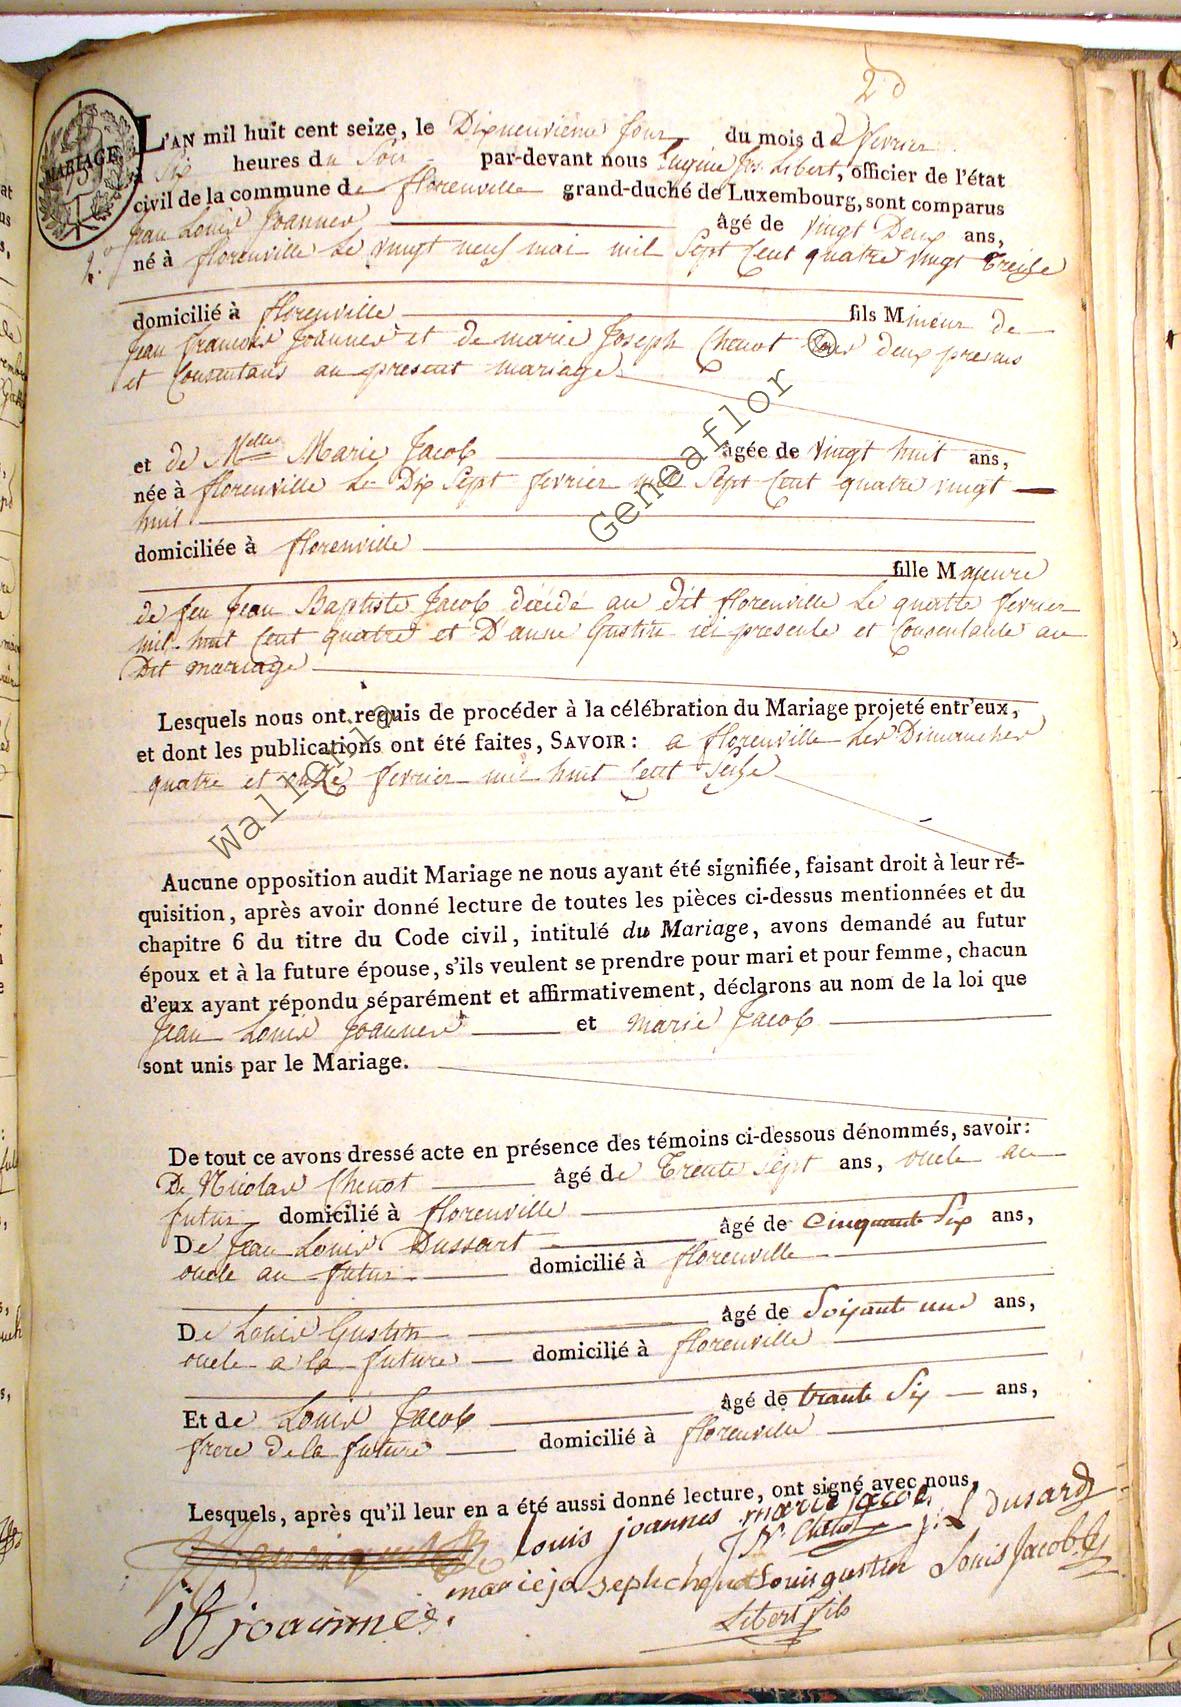 2d
MARIAGE
L'AN mil huit cent seize, le Dixneuvième Jour du mois de fevrier
à Six heures du Soir par-devant nous Eugène Jos. Libert, officier de l'état
civil de la commune de florenville grand-duché de Luxembourg, sont comparus
2.° Jean Louis Joannes âgé de vingt Deux ans,
né à florenville Le vingt neuf mai mil Sept Cent quatre vingt Treize
domicilié à florenville fils Mineur de
Jean francois Joannes et de marie Joseph Chenot tous deux presens
et Consentans au present mariage
et de Melle Marie Jacob âgée de vingt huit ans,
née à florenville Le Dix Sept fevrier mil Sept Cent quatre vingt
huit
domiciliée à florenville
fille Majeure
de feu Jean Baptiste Jacob décédé au dit florenville Le quatre fevrier
mil huit Cent quatre et D'anne Gustin ici presente et Consentante au
Dit mariage
Lesquels nous ont requis de procéder à la célébration du Mariage projeté entr'eux,
et dont les publications ont été faites, SAVOIR : a florenville Les Dimanches
quatre et onze fevrier mil huit Cent Seize
Aucune opposition audit Mariage ne nous ayant été signifiée, faisant droit à leur ré-
quisition, après avoir donné lecture de toutes les pièces ci-dessus mentionnées et du
chapitre 6 du titre du Code civil, intitulé du Mariage, avons demandé au futur
époux et à la future épouse, s'ils veulent se prendre pour mari et pour femme, chacun
d'eux ayant répondu séparément et affirmativement, déclarons au nom de la loi que
Jean Louis Joannes et marie Jacob
sont unis par le Mariage.
De tout ce avons dressé acte en présence des témoins ci-dessous dénommés, savoir :
De Nicolas Chenot âgé de Trente Sept ans, oncle au
futur domicilié à florenville
De Jean Louis Dussart âgé de Cinquante Six ans,
oncle au futur domicilié à florenville
De Louis Gustin âgé de Soixante une ans,
oncle a la future domicilié à florenville
Et de Louis Jacob âgé de trante Six ans,
frere de la future domicilié à florenville
Lesquels, après qu'il leur en a été aussi donné lecture, ont signé avec nous,
louis joannes marie jacob
J N Chenot j. L dusard
marie joseph chenot Louis gustin Louis Jacob
jf joannes. Libert fils
Wallonia @ Geneaflor